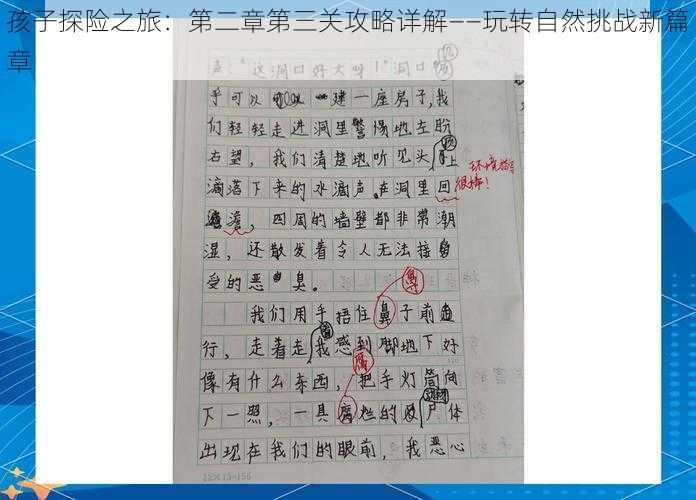 孩子探险之旅：第二章第三关攻略详解——玩转自然挑战新篇
章
声："这洞口好大呀！"洞口
乎可以建一座房子，我
们轻轻走进洞里警惕地左盼
右望，我们清楚地听见头上
滴落下来的水滴声在洞里回
荡，四周的墙壁都非常潮
湿，还散发着令人无法接
受的恶臭。
我们用手捂住鼻子前
行，走着走我感到脚地下好
像有什么东西，把手灯筒向
下一照，一具腐烂的尸体
出现在我们的眼前，我恶心
鼻
腐
很棒！